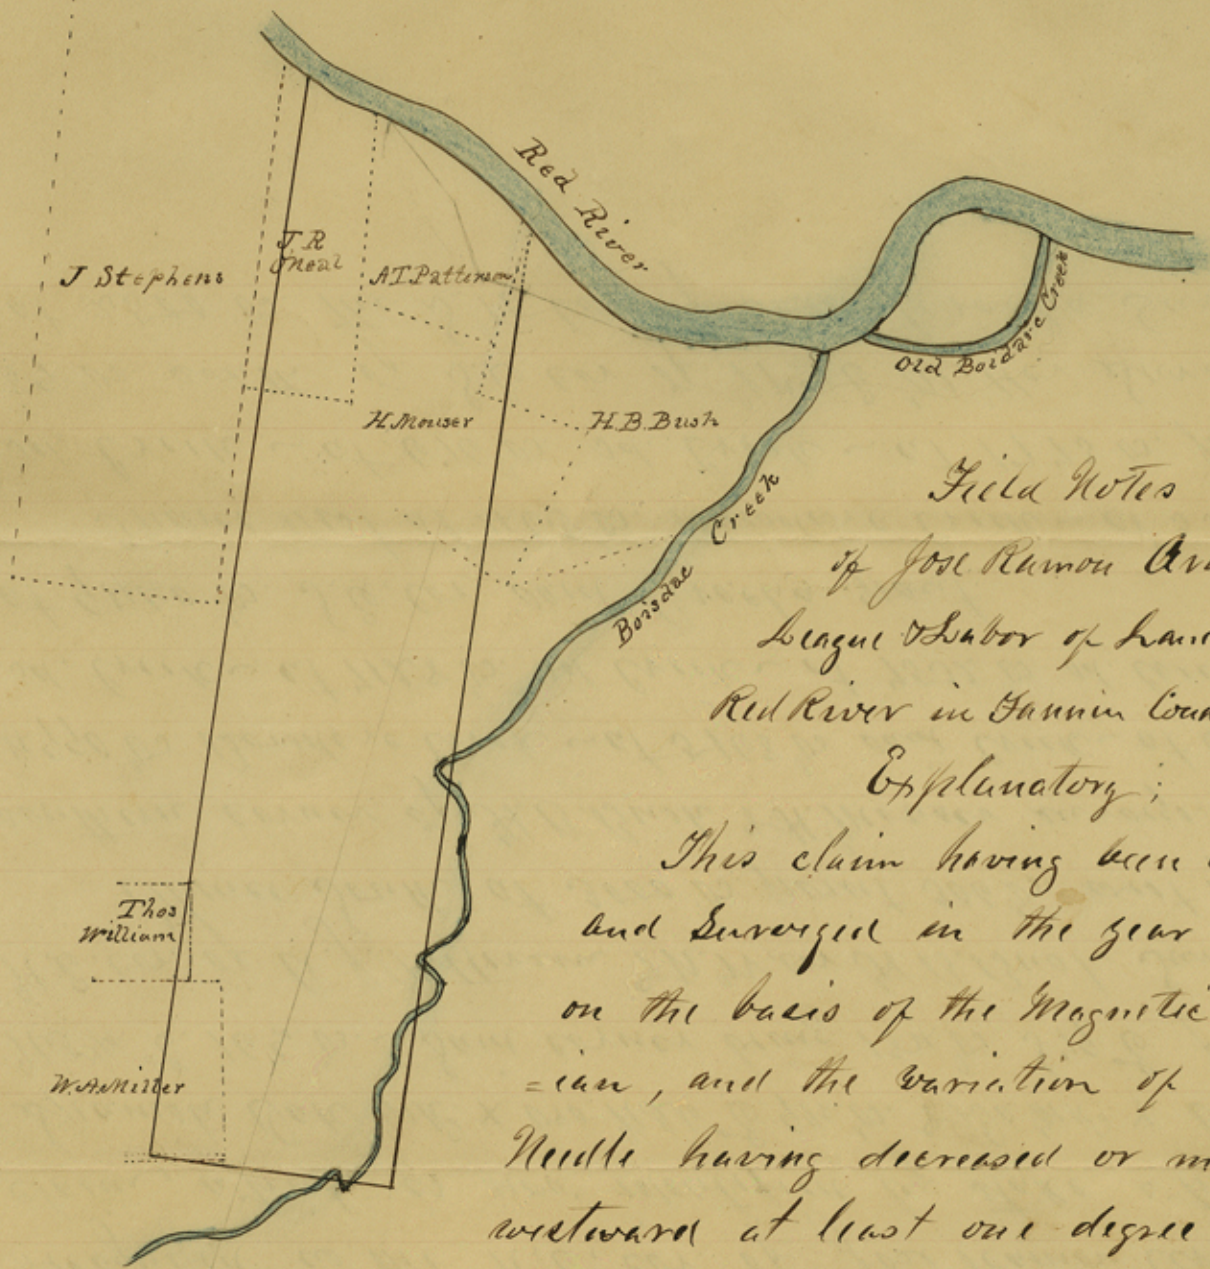 Red River
J Stephens
J. R
Oneal
A T. Patterson
Old Boidarc Creek
H. Mouser
H. B. Bush
Boisdac Creek
Thos
William
W. A. Miller
Field Notes
of Jose Ramon
League & Labor of
Red River in Fannin
Explanatory;
This claim having been
and Surveyed in the year
on the basis of the Magnetic
=ian, and the variation of
Needle having decreased or
westward at least one degree